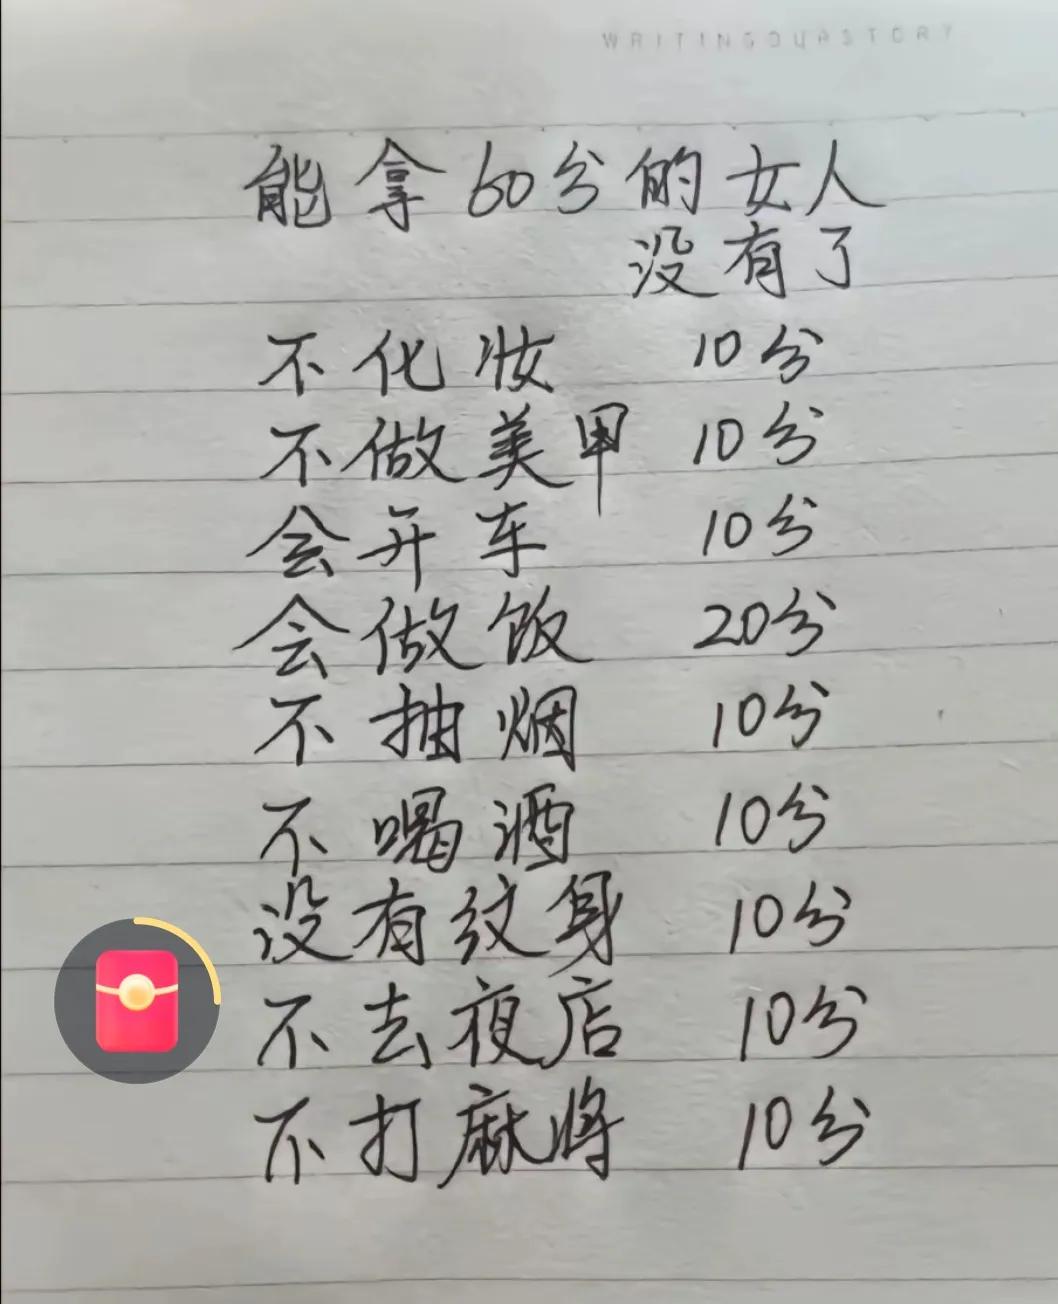 WRITINGOURSTORY
能拿60分的女人
没有了
不化妆 10分
不做美甲 10分
会开车 10分
会做饭 20分
不抽烟 10分
不喝酒 10分
没有纹身 10分
不去夜店 10分
不打麻将 10分